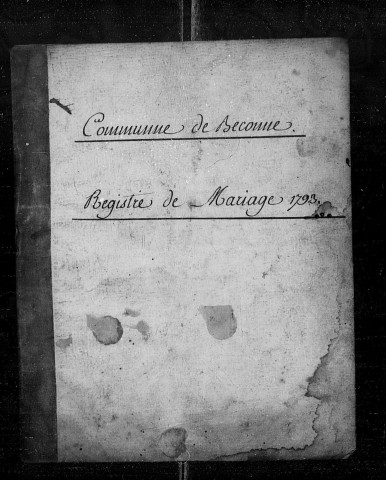 Communne de Beconne.
Registre de Mariage 1793.